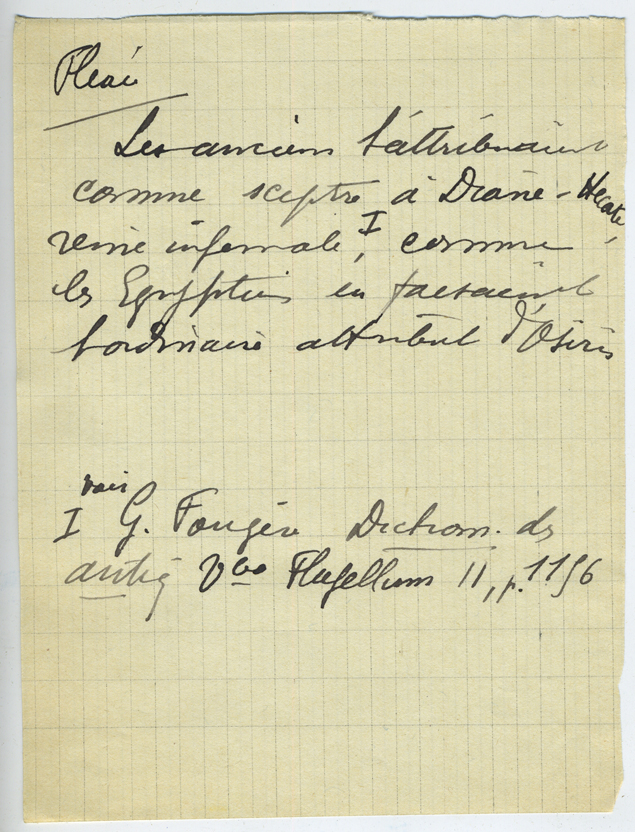 Fléau
Les anciens l'attribuaient
comme sceptre à Diane-Hecate,
reine infernale, I comme
les Egyptiens en faisaient
l'ordinaire attribut d'Osiris
voir
I G. Fougère Diction. des
antiq Vbo Flagellum II, p. 1156